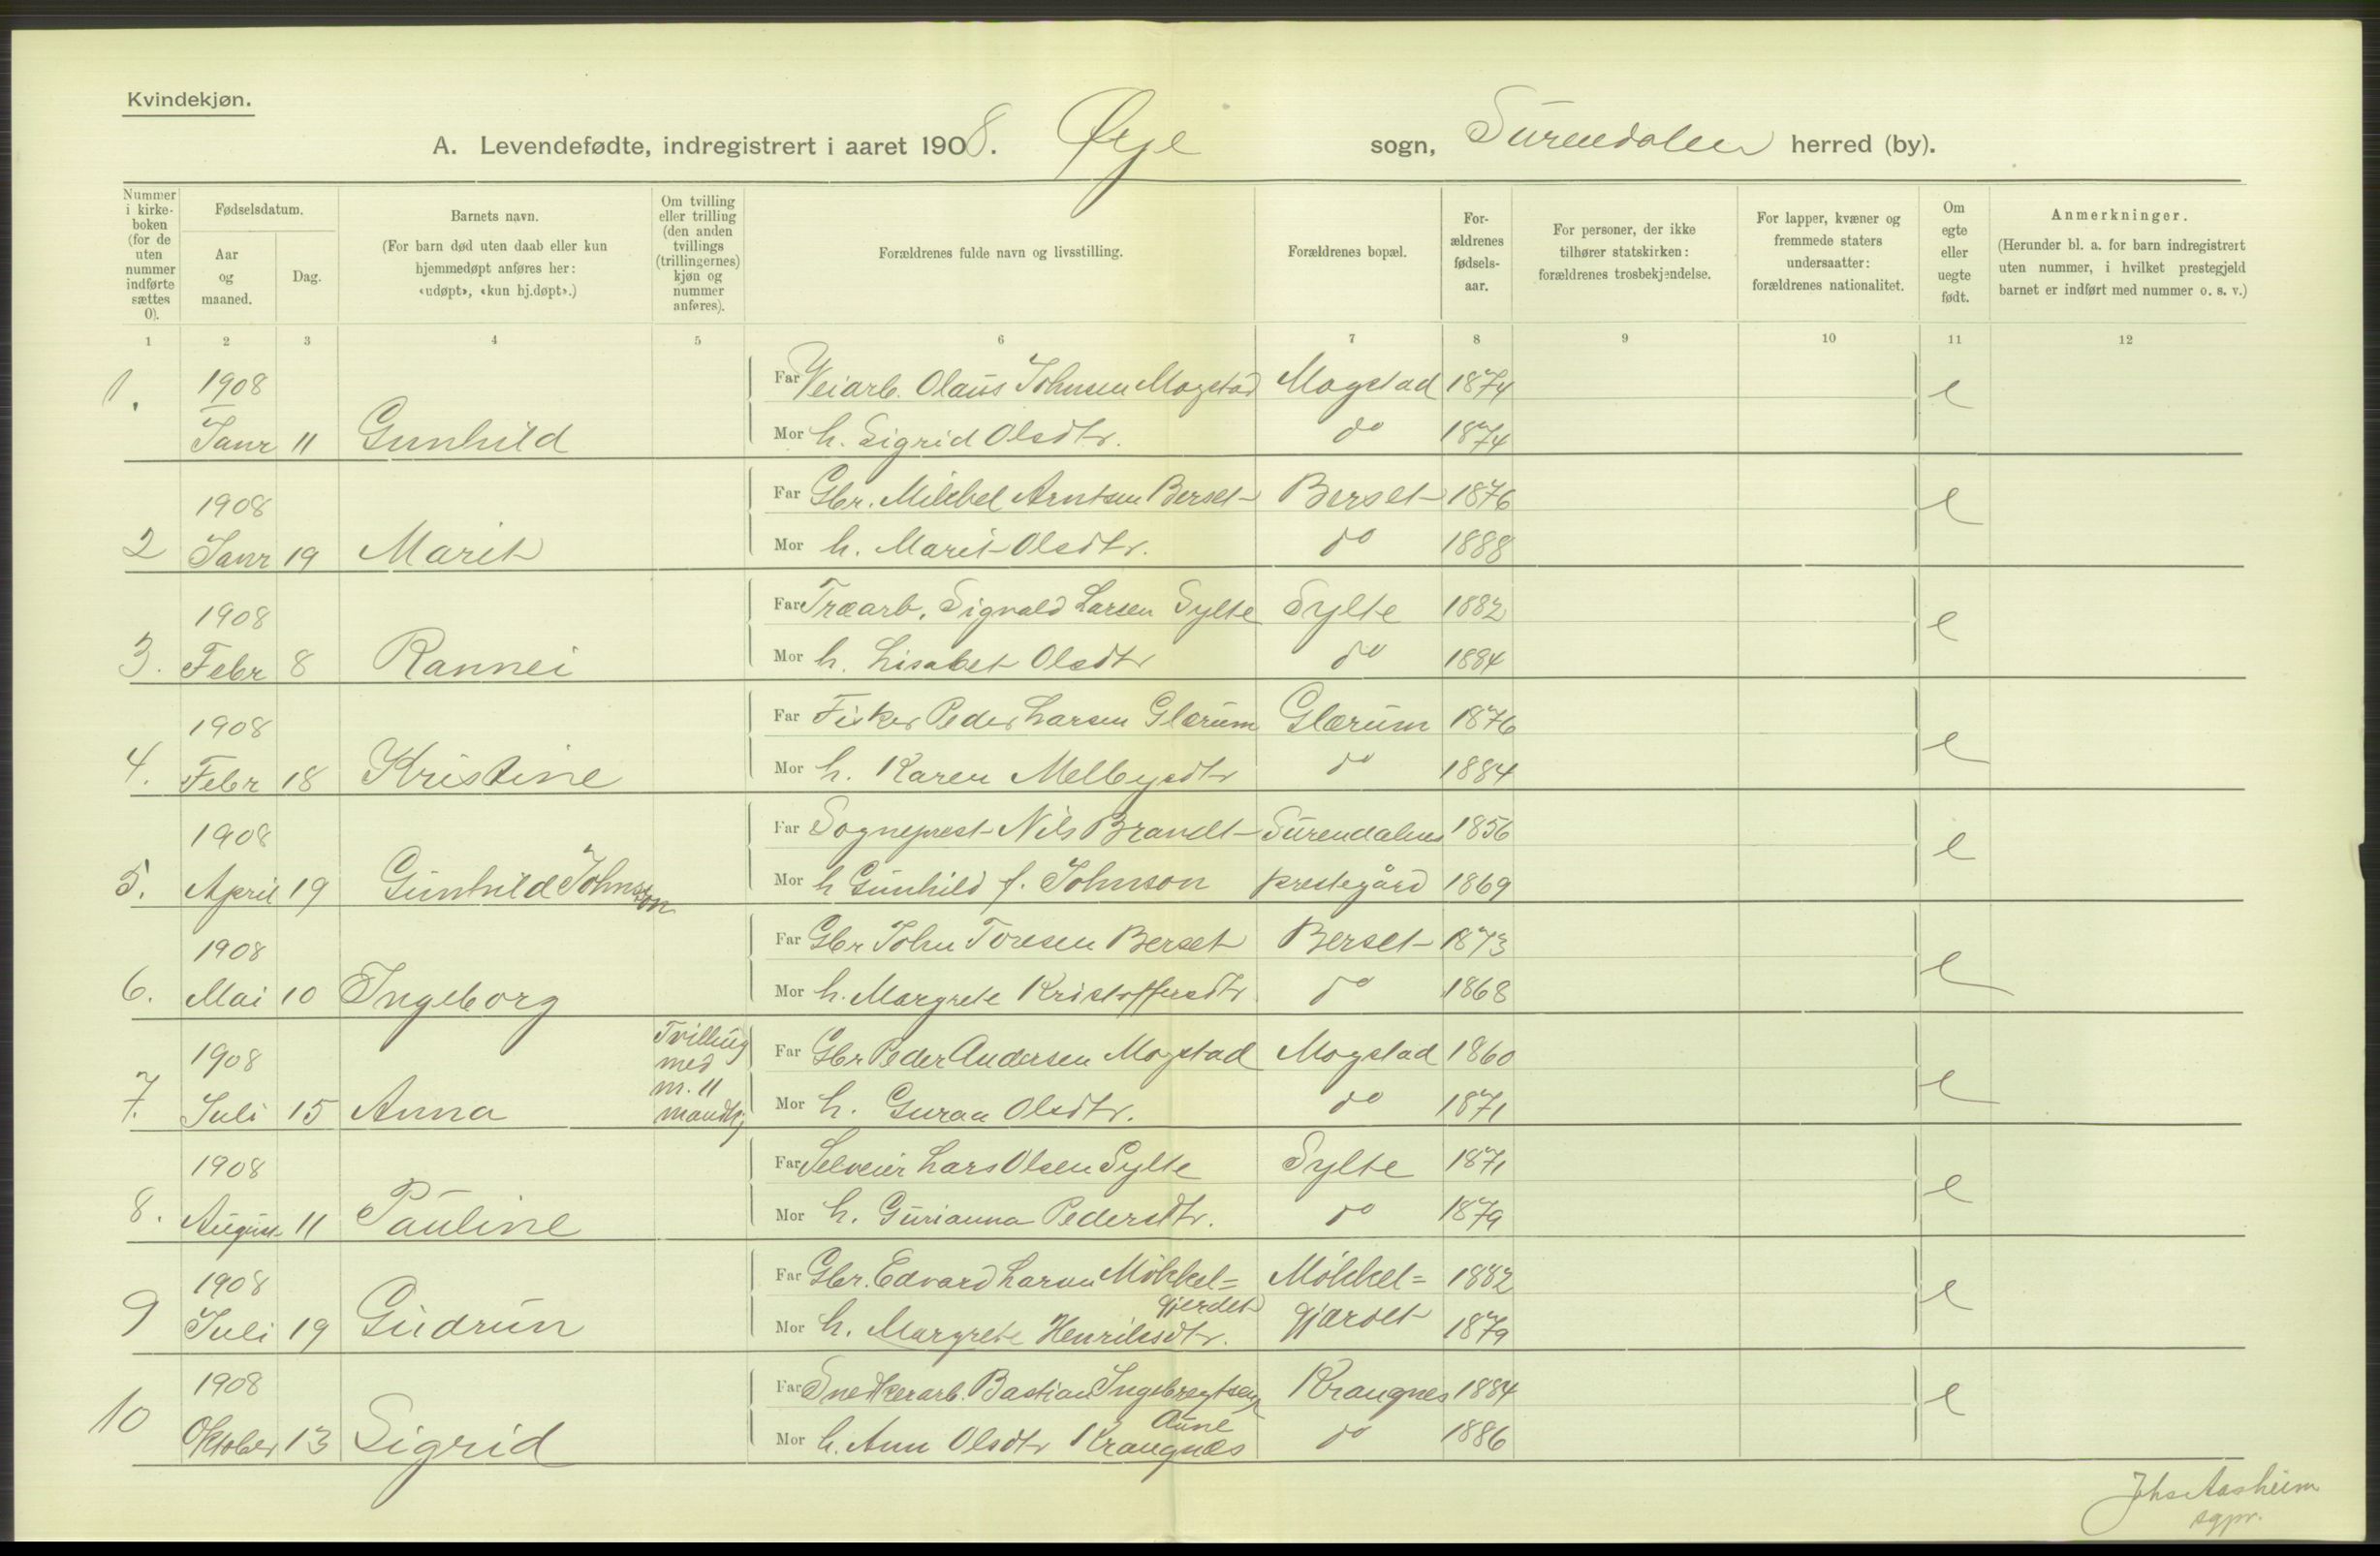 Kvindekjøn.
A. Levendefødte, indregistrert i aaret 1908. Øye sogn, Surendalen herred (by).
Nummer i kirkeboken (for de uten nummer indførte sættes 0).
Fødselsdatum.
Aar og maaned.
Dag.
Barnets navn.
(For barn død uten daab eller kun hjemmedøpt anføres her: «udøpt», «kun hj.døpt».)
Om tvilling eller trilling (den anden tvillings (trillingernes) kjøn og nummer anføres).
Forældrenes fulde navn og livsstilling.
Forældrenes bopæl.
Forældrenes fødselsaar.
For personer, der ikke tilhører statskirken: forældrenes trosbekjendelse.
For lapper, kvæner og fremmede staters undersaatter: forældrenes nationalitet.
Om egte eller uegte født.
Anmerkninger.
(Herunder bl. a. for barn indregistrert uten nummer, i hvilket prestegjeld barnet er indført med nummer o. s. v.)
1 2 3 4 5 6 7 8 9 10 11 12
1. 1908 Far Veiarb. Olaus Johnsen Mogstad Mogstad 1874 e
Janr 11 Gunhild Mor h. Sigrid Olsdtr. do 1874
1908 Far Gbr. Mikkel Arntsen Berset Berset 1876 e
2 Janr 19 Marit Mor h. Marit Olsdtr. do 1888
1908 Far Træarb. Sigvald Larsen Sylte Sylte 1882 e
3. Febr 8 Rannei Mor h. Lisabet Olsdtr do 1884
1908 Far Fisker Peder Larsen Glærum Glærum 1876 e
4. Febr 18 Kristine Mor h. Karen Melbysdtr do 1884
1908 Far Sogneprest Nils Brandt Surendalens 1856 e
5. April 19 Gunhild Johnson Mor h Gunhild f. Johnson prestegård 1869
1908 Far Gbr John Toresen Berset Berset 1873 e
6. Mai 10 Ingeborg Mor h. Margrete Kristoffersdtr do 1868
1908 Tvilling med m. 11 mandkj Far Gbr Peder Andersen Mogstad Mogstad 1860 e
7. Juli 15 Anna Mor h. Guraa Olsdtr. do 1871
1908 Far Selveier Lars Olsen Sylte Sylte 1871 e
8. August 11 Pauline Mor h. Gurianna Pedersdtr. do 1879
1908 Far Gbr. Edvard Larsen Mökkel= Mökkel= 1882 e
gjerdet
9 Juli 19 Gudrun Mor h. Margrete Henriksdtr. gjærdet 1879
1908 Far Snedkerarb. Bastian Ingebregtsen Krangnes 1884 e
Aune
10 Oktober 13 Sigrid Mor h. Ann Olsdtr Krangnæs do 1886
Johs Aasheim
sgpr.